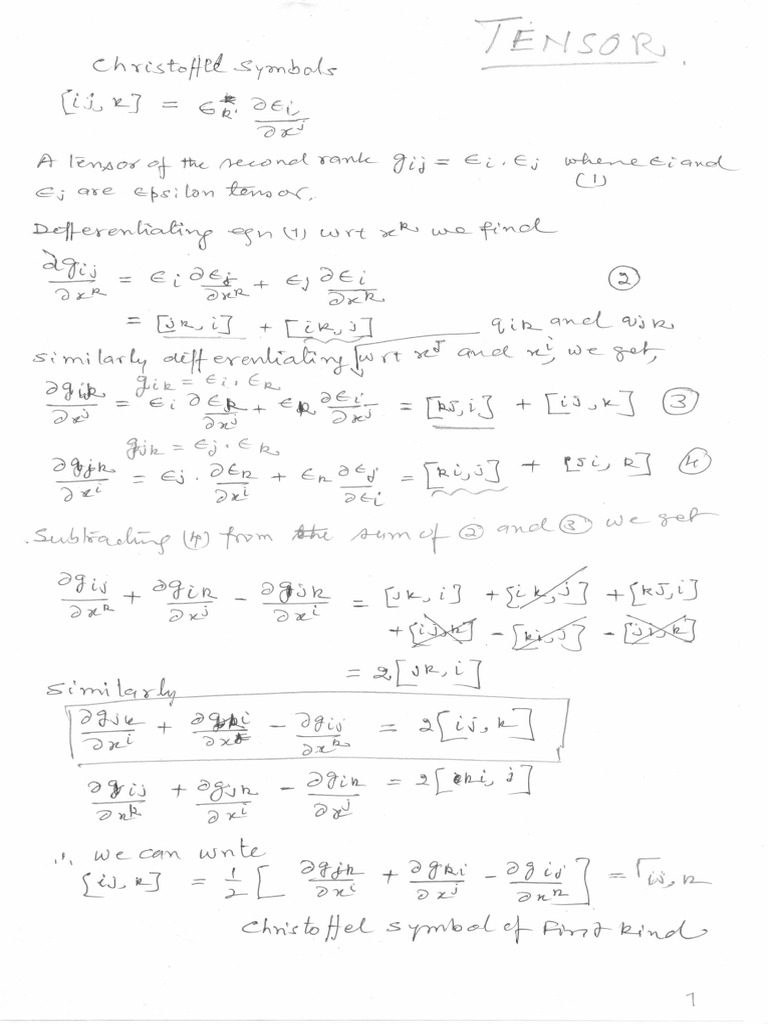 TENSOR.
Christoffel Symbols
[ij, k] = ϵk ∂ϵi/∂x^j
A tensor of the second rank gij = ϵi . ϵj where ϵi and
(1)
ϵj are epsilon tensor.
Differentiating eqn (1) wrt x^k we find
∂gij/∂x^k = ϵi ∂ϵj/∂x^k + ϵj ∂ϵi/∂x^k (2)
= [jk, i] + [ik, j] gik and gjk
Similarly differentiating wrt x^j and x^i, we get,
gik = ϵi . ϵk
∂gik/∂x^j = ϵi ∂ϵk/∂x^j + ϵk ∂ϵi/∂x^j = [kj, i] + [ij, k] (3)
gjk = ϵj . ϵk
∂gjk/∂x^i = ϵj . ∂ϵk/∂x^i + ϵk ∂ϵj/∂ϵi = [ki, j] + [ji, k] (4)
Subtracting (4) from the sum of (2) and (3) we get
∂gij/∂x^k + ∂gik/∂x^j - ∂gjk/∂x^i = [jk, i] + [ik, j] + [kj, i]
+ [ij, k] - [ki, j] - [ji, k]
= 2[jk, i]
Similarly
∂gjk/∂x^i + ∂gki/∂x^j - ∂gij/∂x^k = 2[ij, k]
∂gij/∂x^k + ∂gjk/∂x^i - ∂gik/∂x^j = 2[ki, j]
∴ we can write
[ij, k] = 1/2 [ ∂gjk/∂x^i + ∂gki/∂x^j - ∂gij/∂x^k ] = Γij, k
Christoffel symbol of First kind
1